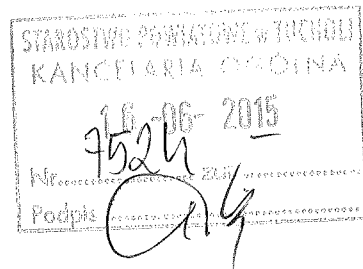 STAROSTWO POWIATOWE w TUCHOLI
KANCELARIA OGÓLNA
16 -06- 2015
Nr. 7524 zał.
Podpis